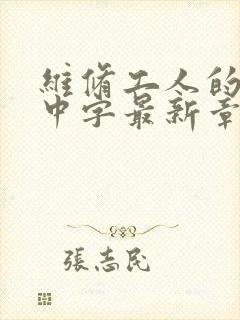 維修工人的
中字最新章
張志民